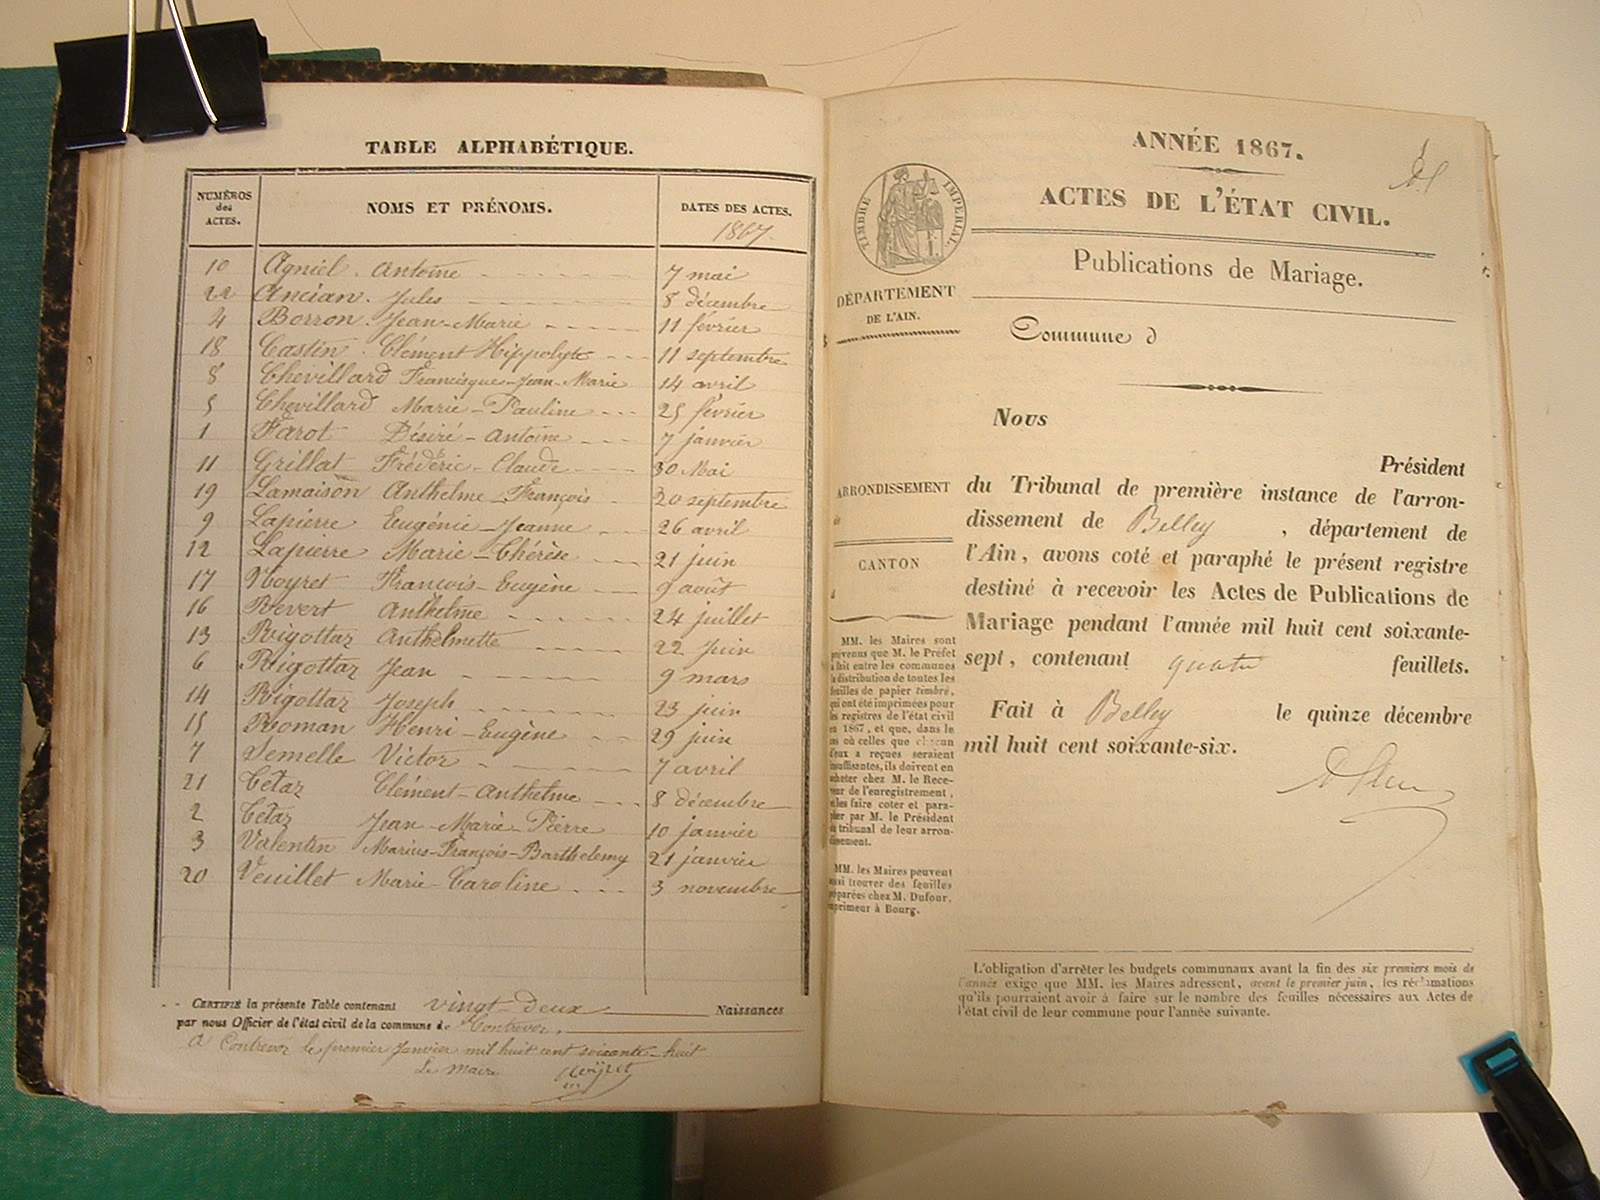 TABLE ALPHABÉTIQUE.
NUMÉROS
des
ACTES.
NOMS ET PRÉNOMS.
DATES DES ACTES.
1867.
10 Agniel. Antoine 7 mai
22 Ancian. Jules 8 décembre
4 Borron. Jean-Marie 11 février
18 Castin. Clément Hippolyte 11 septembre
8 Chevillard Francisque-Jean-Marie 14 avril
5 Chevillard Marie-Pauline 25 février
1 Farot Désiré-Antoine 7 janvier
11 Grillat Frédéric-Claude 30 Mai
19 Lamaison Anthelme-François 20 septembre
9 Lapierre Eugénie-Jeanne 26 avril
12 Lapierre Marie-Thérèse 21 juin
17 Moyret François-Eugène 9 août
16 Revert Anthelme 24 juillet
13 Rigottaz Anthelmette 22 Juin
6 Rigottaz Jean 9 mars
14 Rigottaz Joseph 23 juin
15 Roman Henri-Eugène 29 juin
7 Semelle Victor 7 avril
21 Tétaz Clément-Anthelme 8 décembre
2 Tétaz Jean-Marie-Pierre 10 janvier
3 Valentin Marius-François-Barthelemy 21 janvier
20 Veuillet Marie-Caroline 3 novembre
CERTIFIÉ la présente Table contenant vingt-deux Naissances
par nous Officier de l'état civil de la commune de Contrevoz,
A Contrevoz le premier Janvier mil huit cent soixante-huit
Le Maire
ANNÉE 1867.
ACTES DE L'ÉTAT CIVIL.
TIMBRE IMPÉRIAL.
Publications de Mariage.
DÉPARTEMENT
DE L'AIN.
Commune d
Nous
Président
ARRONDISSEMENT
de
CANTON
d
du Tribunal de première instance de l'arron-
dissement de Belley , département de
l'Ain, avons coté et paraphé le présent registre
destiné à recevoir les Actes de Publications de
Mariage pendant l'année mil huit cent soixante-
sept, contenant quatre feuillets.
Fait à Belley le quinze décembre
mil huit cent soixante-six.
MM. les Maires sont
prévenus que M. le Préfet
a fait entre les communes
la distribution de toutes les
feuilles de papier timbré,
qui ont été imprimées pour
les registres de l'état civil
en 1867, et que, dans le
cas où celles que chacun
d'eux a reçues seraient
insuffisantes, ils doivent en
acheter chez M. le Rece-
veur de l'enregistrement,
et les faire coter et para-
pher par M. le Président
du tribunal de leur arron-
dissement.
MM. les Maires peuvent
aussi trouver des feuilles
préparées chez M. Dufour,
imprimeur à Bourg.
L'obligation d'arrêter les budgets communaux avant la fin des six premiers mois de
l'année exige que MM. les Maires adressent, avant le premier juin, les réclamations
qu'ils pourraient avoir à faire sur le nombre des feuilles nécessaires aux Actes de
l'état civil de leur commune pour l'année suivante.